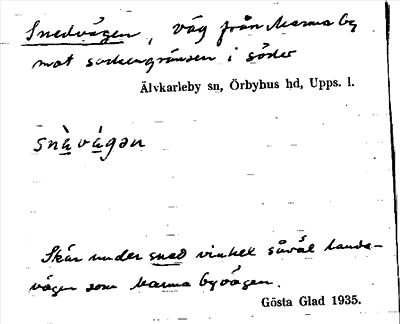 Snedvägen, väg från Marma by
mot sockengränsen i söder
Älvkarleby sn, Örbyhus hd, Upps. l.
snὰvágən
Skär under sned vinkel såväl lands-
vägen som Marma byvägen.
Gösta Glad 1935.